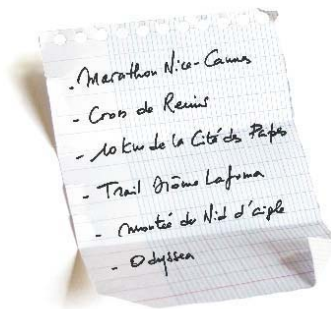 - Marathon Nice-Cannes
- Cross de Reims
- 10 km de la Cité des Papes
- Trail Jérôme Lafuma
- Montée du Nid d'aigle
- Odyssea